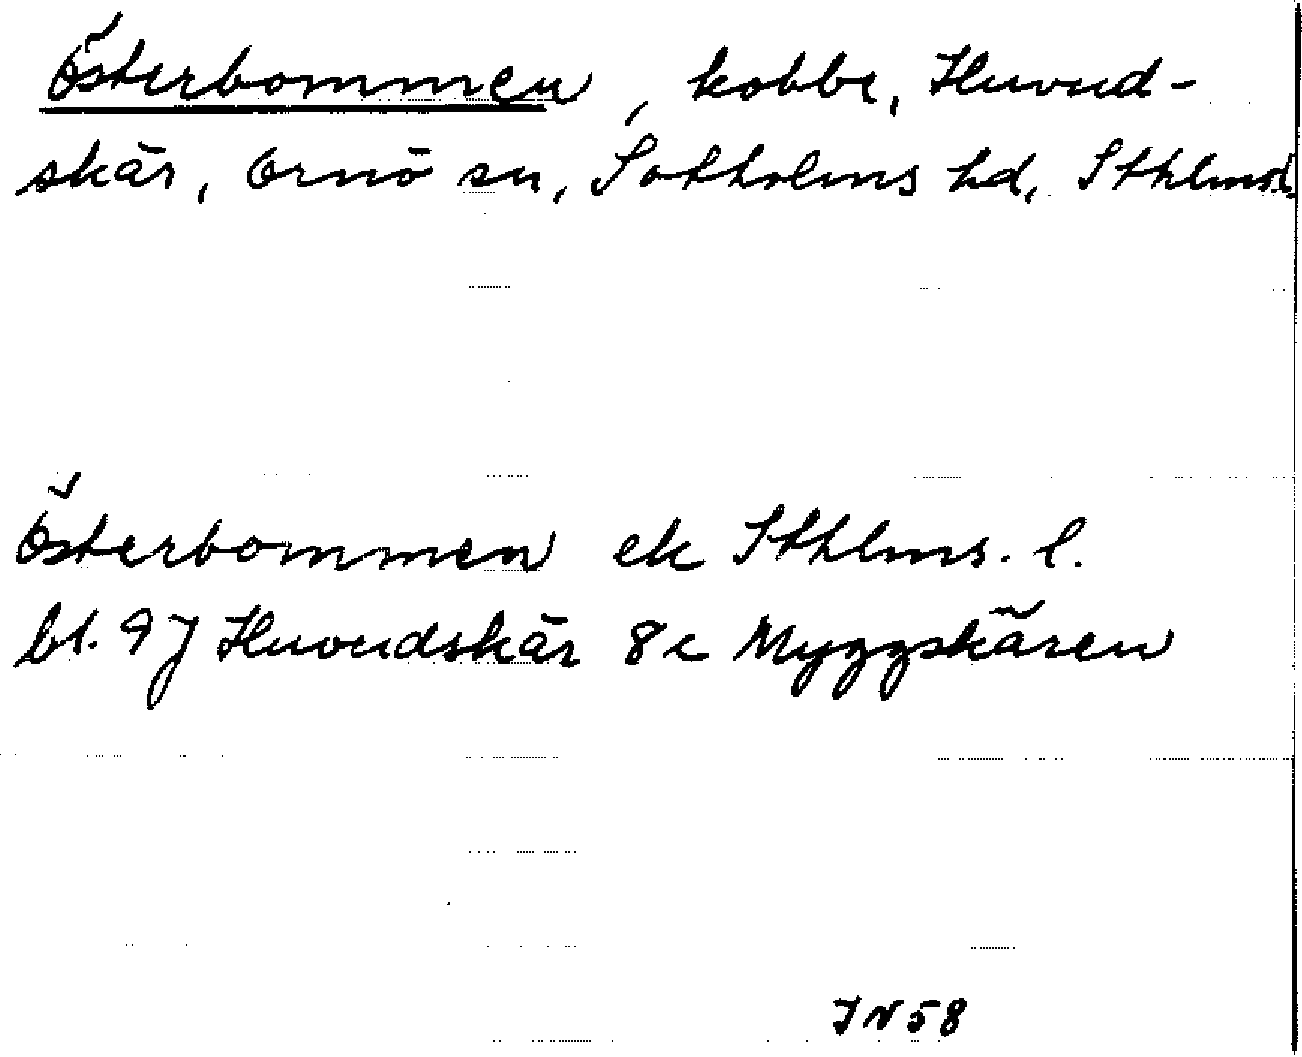 Österbommen, kobbe, Huvud-
skär, Ornö sn, Sotholms hd, Sthlms l.
Österbommen ek Sthlms. l.
bl. 9J Huvudskär 8c Myggskären
IN 58